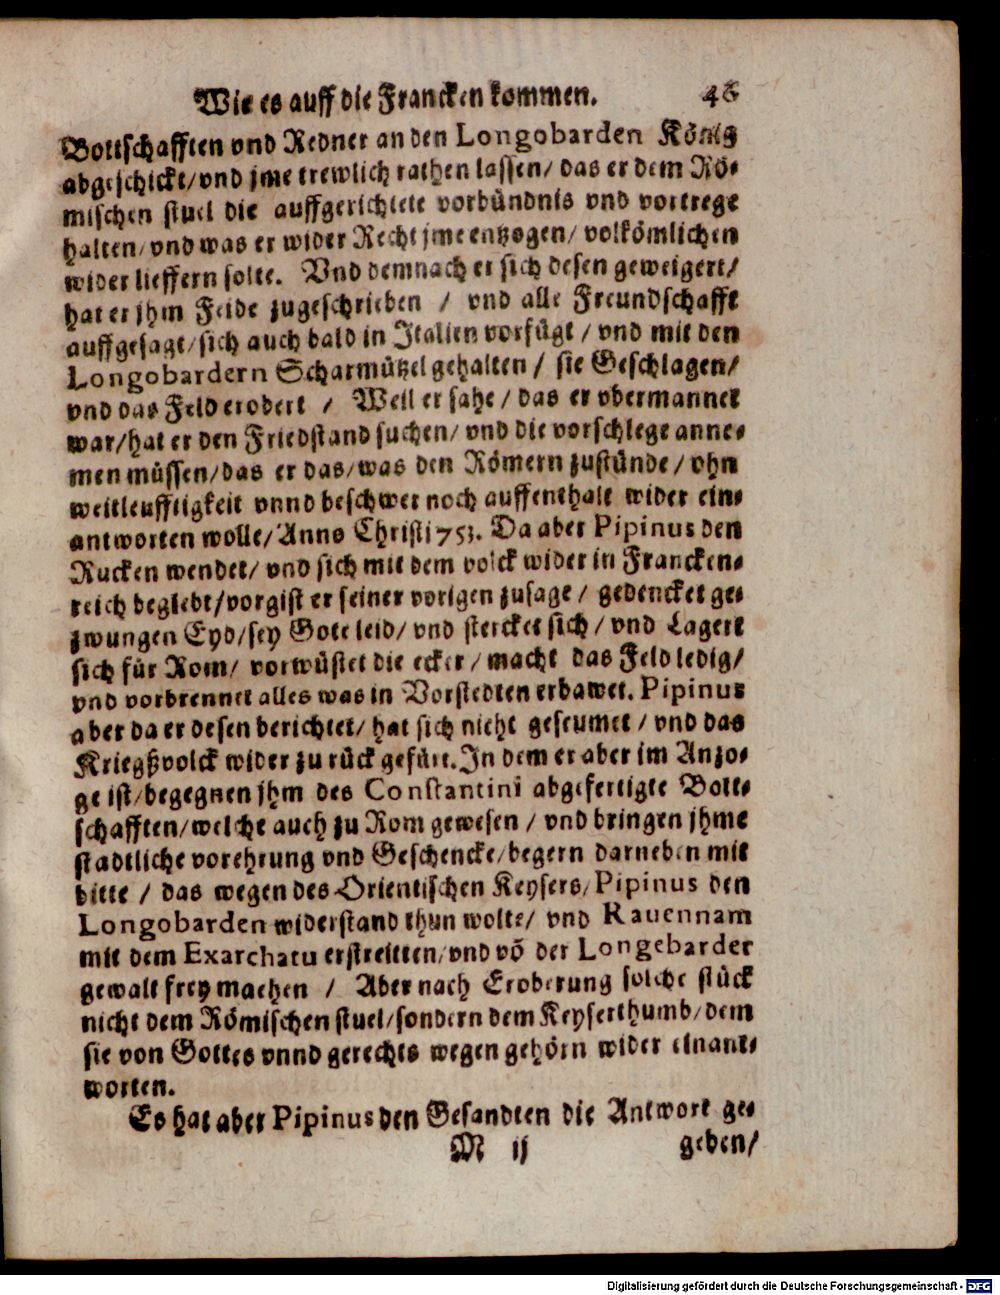 Wie es auff die Francken kommen. 46
Bottschafften vnd Redner an den Longobarden König
abgeschickt/vnd jme trewlich rathen lassen/ das er dem Rö-
mischen stuel die auffgerichtete vorbündnis vnd vortrege
halten/vnd was er wider Recht jme entzogen/ volkömlichen
wider lieffern solte. Vnd demnach er sich desen geweigert/
hat er jhm Feide zugeschrieben / vnd alle Freundschafft
auffgesagt/sich auch bald in Italien vorfügt / vnd mit den
Longobardern Scharmützel gehalten / sie Geschlagen/
vnd das Feld erobert / Weil er sahe / das er vbermannet
war/hat er den Friedstand suchen/ vnd die vorschlege anne-
men müssen/das er das/was den Römern zustünde / ohn
weitleufftigkeit vnnd beschwer noch auffenthalt wider ein-
antworten wolle/Anno Christi 753. Da aber Pipinus den
Rucken wendet/ vnd sich mit dem volck wider in Francken-
reich beglebt/vorgist er seiner vorigen zusage / gedencket ge-
zwungen Eyd/sey Gott leid/ vnd stercket sich / vnd Lagert
sich für Rom/ vorwüstet die ecker / macht das Feld ledig/
vnd vorbrennet alles was in Vorstedten erbawet. Pipinus
aber da er desen berichtet/ hat sich nicht geseumet / vnd das
Kriegßvolck wider zu rück gefürt. In dem er aber im Anzo-
ge ist/begegnen jhm des Constantini abgefertigte Bott-
schafften/welche auch zu Rom gewesen / vnd bringen jhme
stadtliche vorehrung vnd Geschencke/begern darneben mit
bitte / das wegen des Orientischen Keysers/Pipinus den
Longobarden widerstand thun wolte/ vnd Rauennam
mit dem Exarchatu erstreitten/vnd võ der Longebarder
gewalt frey machen / Aber nach Eroberung solche stück
nicht dem Römischen stuel/sondern dem Keyserthumb/dem
sie von Gottes vnnd gerechts wegen gehörn wider einant-
worten.
Es hat aber Pipinus den Gesandten die Antwort ge-
M ij geben/
Digitalisierung gefördert durch die Deutsche Forschungsgemeinschaft - DFG